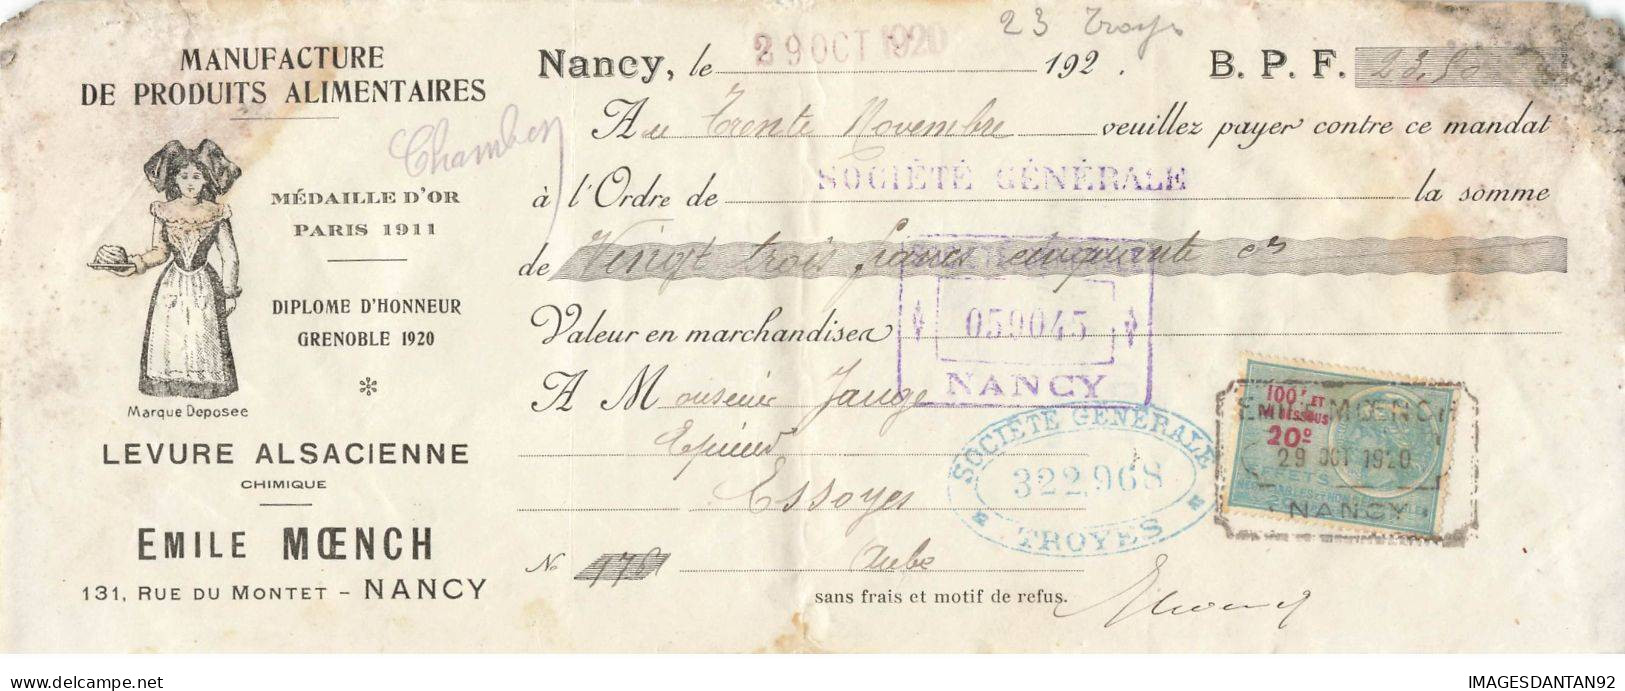 MANUFACTURE
DE PRODUITS ALIMENTAIRES
MÉDAILLE D'OR
PARIS 1911
DIPLOME D'HONNEUR
GRENOBLE 1920
Marque Deposee
LEVURE ALSACIENNE
CHIMIQUE
EMILE MŒNCH
131, RUE DU MONTET - NANCY
23 Troyes
Nancy, le 29 OCT 1920 192 . B. P. F. 23,50
Au Trente Novembre veuillez payer contre ce mandat
à l'Ordre de SOCIÉTÉ GÉNÉRALE la somme
de Vingt trois francs cinquante cs
Valeur en marchandises
059045
NANCY
A Monsieur Jauge
Epicier
Essoyes
Aube
No 178
sans frais et motif de refus.
SOCIÉTÉ GÉNÉRALE
322,968
TROYES
100f ET
AU DESSOUS
20c
EFFETS
EMILE MOENCH
29 OCT 1920
NANCY
IMAGESDANTAN92